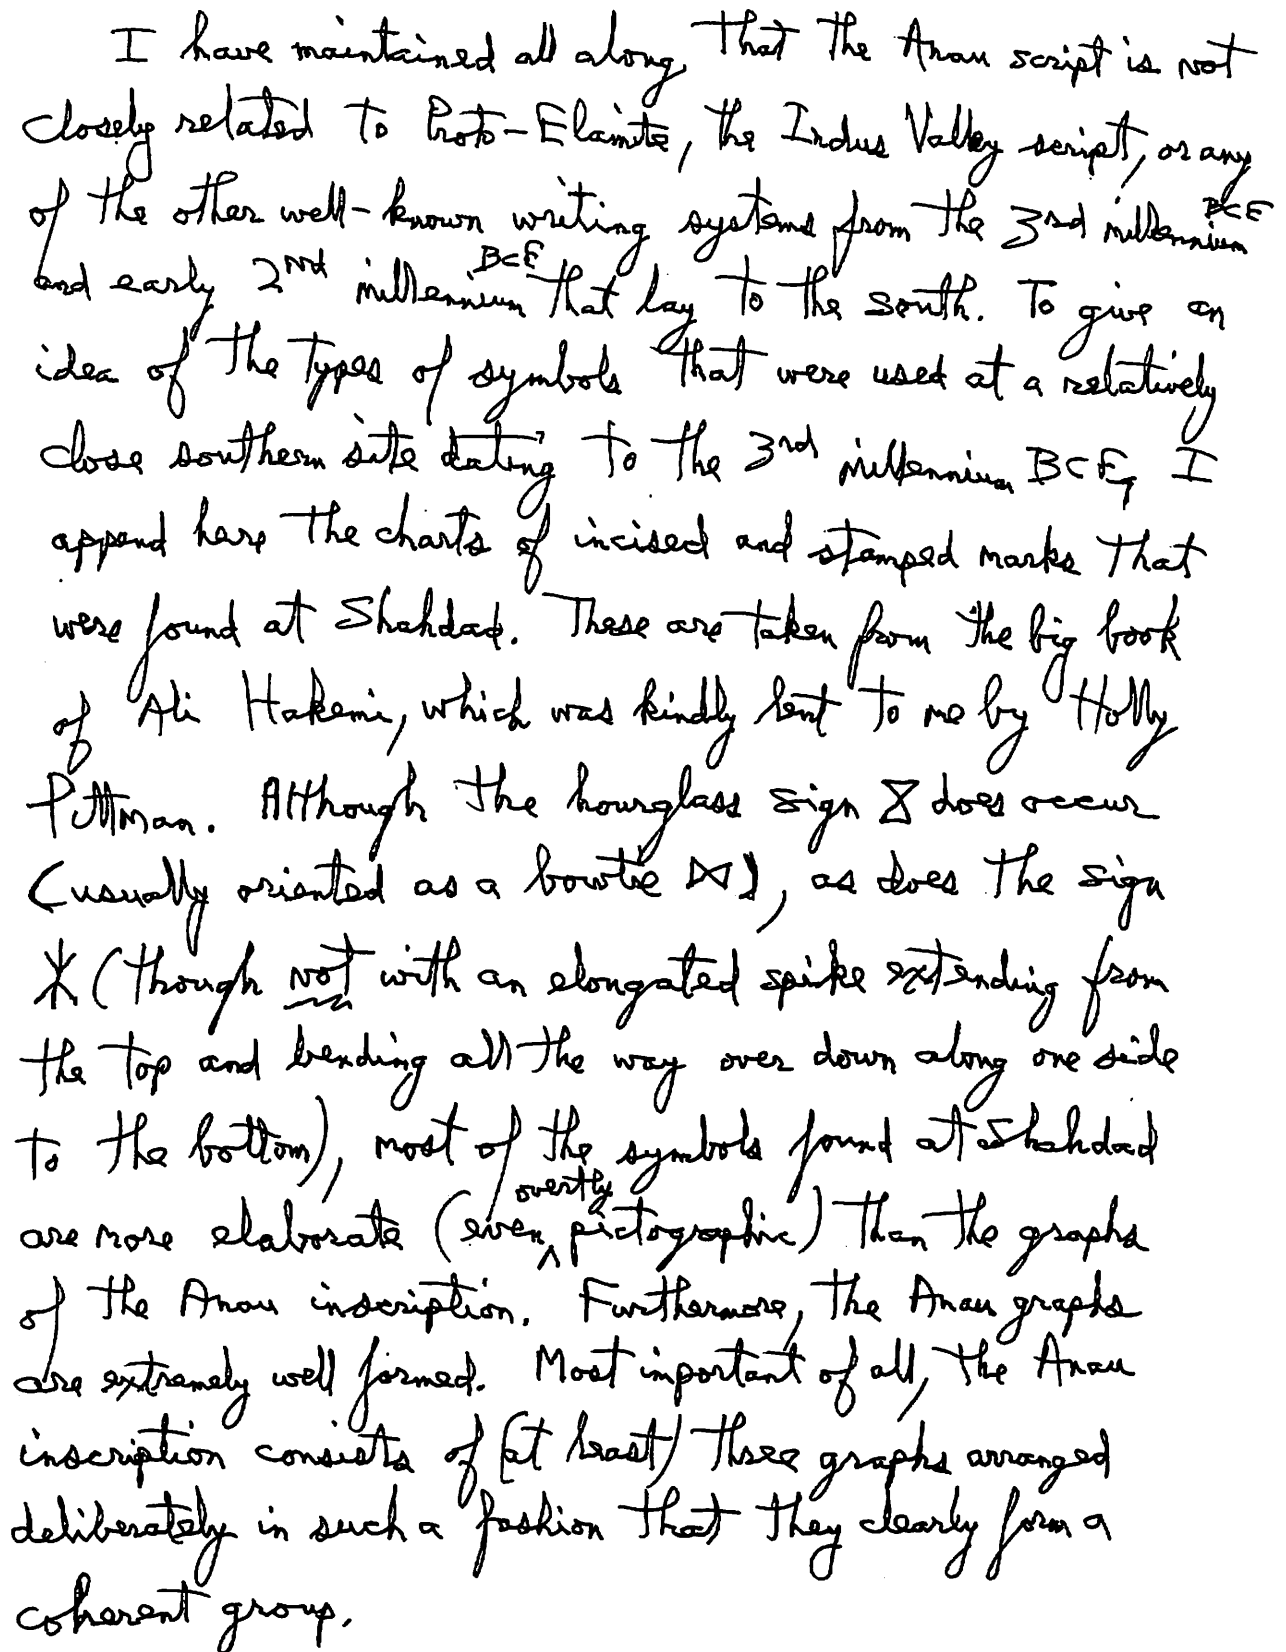 I have maintained all along, that the Anau script is not
closely related to Proto-Elamite, the Indus Valley script, or any
of the other well-known writing systems from the 3rd millennium BCE
and early 2nd millennium BCE that lay to the south. To give an
idea of the types of symbols that were used at a relatively
close southern site dating to the 3rd millennium BCE, I
append here the charts of incised and stamped marks that
were found at Shahdad. These are taken from the big book
of Ali Hakemi, which was kindly lent to me by Holly
Pittman. Although the hourglass sign ⧖ does occur
(usually oriented as a bowtie ⋈), as does the sign
(though not with an elongated spike extending from
the top and bending all the way over down along one side
to the bottom), most of the symbols found at Shahdad
are more elaborate (even overtly pictographic) than the graphs
of the Anau inscription. Furthermore, the Anau graphs
are extremely well formed. Most important of all, the Anau
inscription consists of (at least) three graphs arranged
deliberately in such a fashion that they clearly form a
coherent group.